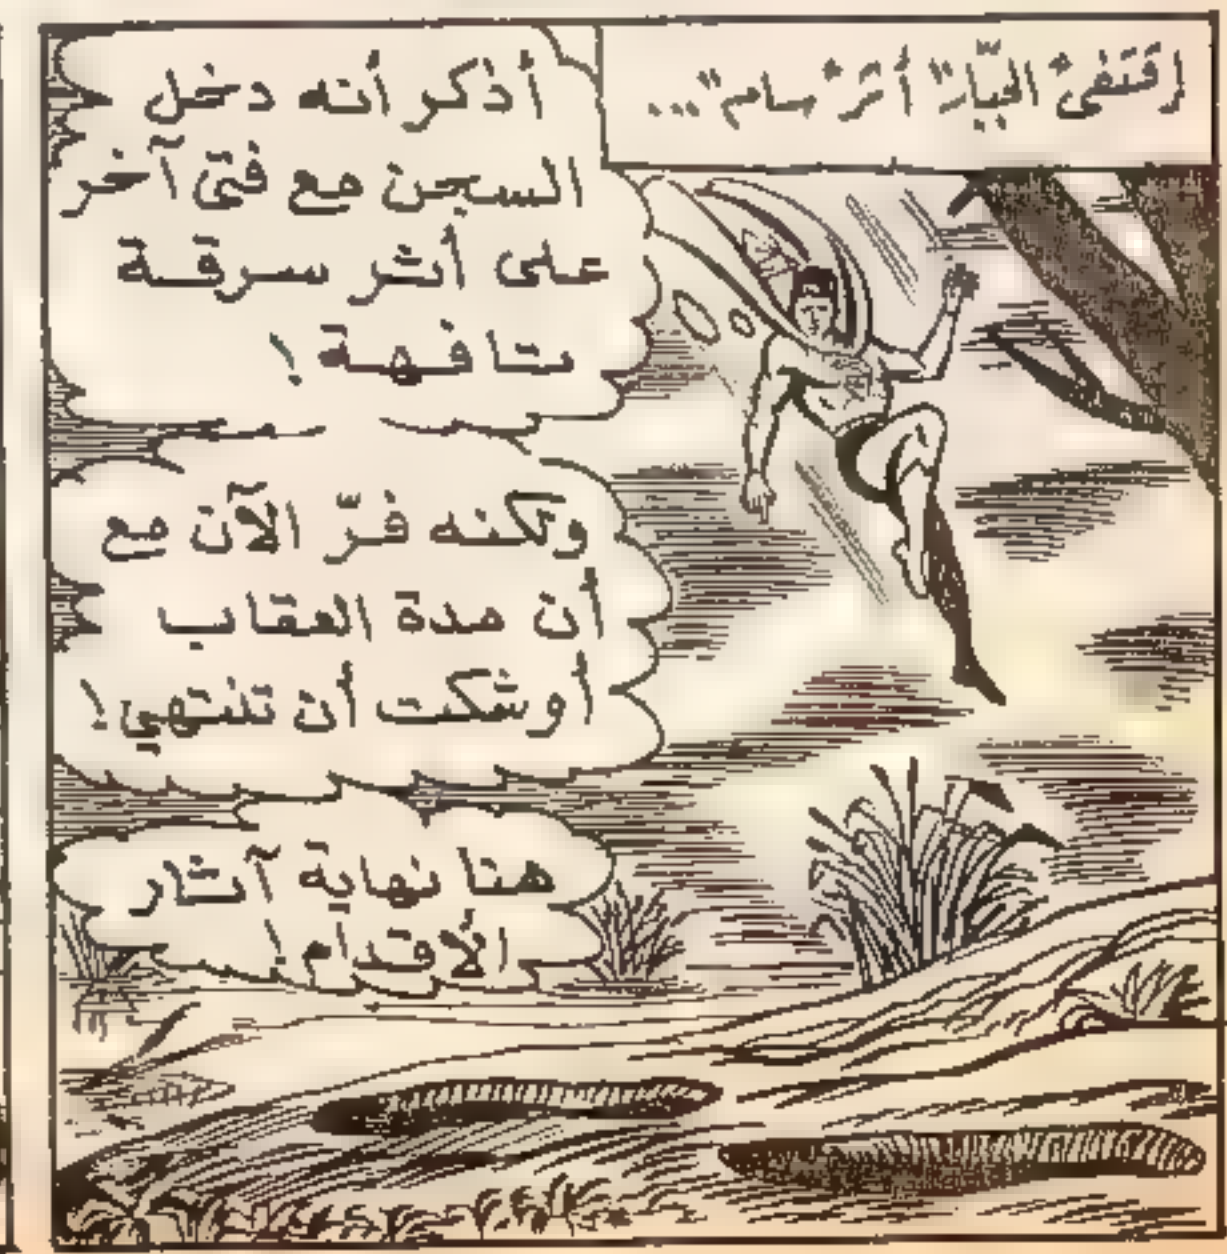 إقتفى "الجبّار" أثر "سام"...
أذكر أنه دخل
السجن مع فتىً آخر
على أثر سرقة
تافهة!
ولكنه فرّ الآن مع
أن مدة العقاب
أوشكت أن تنتهي!
هنا نهاية آثار
الأقدام!